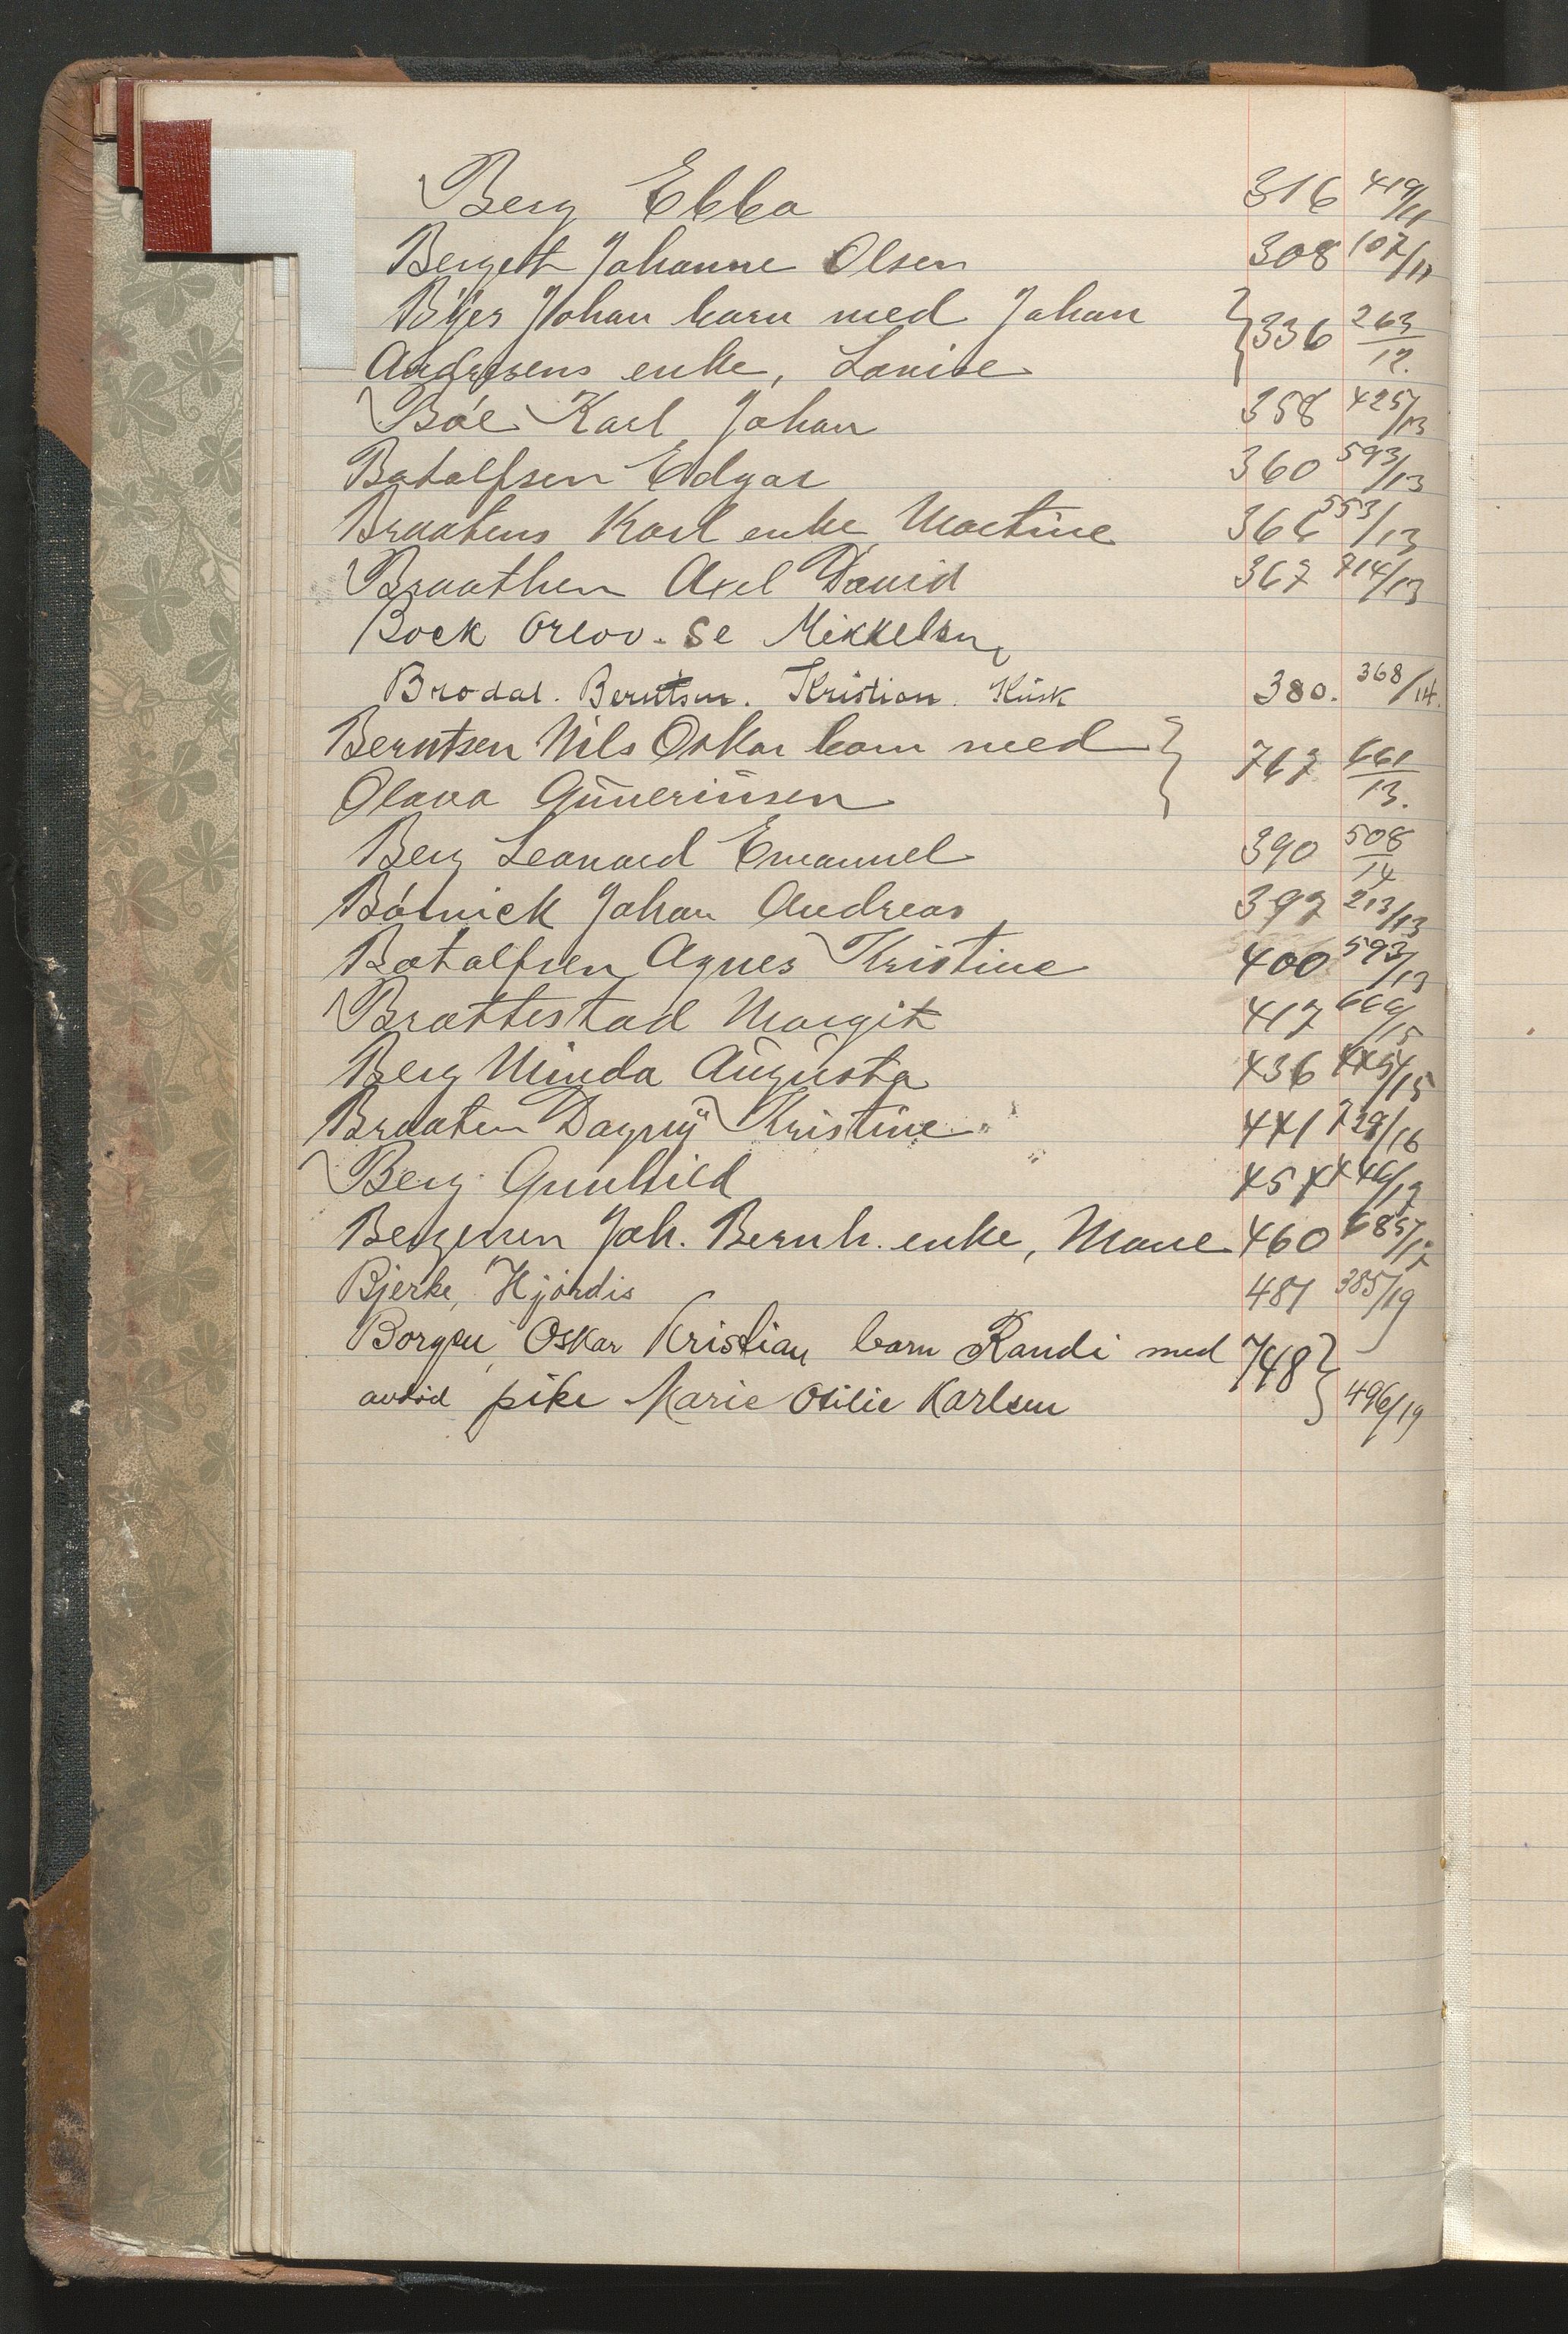 Berg Ebba 316 419/11
Bergeth Johanne Olsen 308 107/11
Byes Johan barn med Johan
Andresens enke, Lovise } 336 263/12.
Bøe Karl Johan 358 425/13
Botolfsen Edgar 360 593/13
Braatens Karl enke Martine 366 553/13
Braathen Axel David 367 714/13
Bock Orlov. Se Mikkelsen
Brodal. Berntsen. Kristian. Kusk 380. 368/14.
Berntsen Nils Oskar barn med
Olava Guneriusen } 767 661/13.
Berg Leonard Emanuel 390 508/14
Børnick Johan Andreas 397 213/13
Botolfsen Agnes Kristine 400 593/13
Brattestad Margit 417 669/15
Berg Minda Augusta 436 445/15
Braaten Dagny Kristine 441 739/16
Berg Gunhild 454 446/17
Bergersen Joh. Bernh. enke, Marie 460 685/17
Bjerke, Hjørdis 481 385/19
Borgen, Oskar Kristian barn Randi med 748 }
avdød pike Marie Otilie Karlsen 496/19